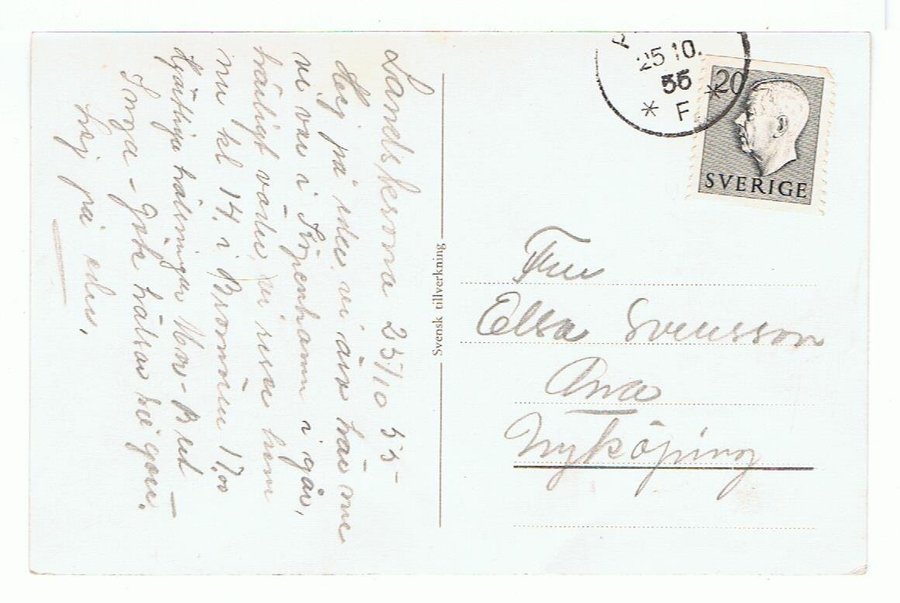 Landskrona 25/10 55-
Hej på eder vi är här nu
vi var i Köpenhamn i går,
härligt väder, vi reser hem
nu kl 14, i Bromma 17.00
Hjärtliga hälsningar Mor - B
Inga - Göte hälsar så gott.
hej på eder,
Svensk tillverkning
25 10.
55
* F *
20
SVERIGE
Fru
Elsa Svensson
Nyköping